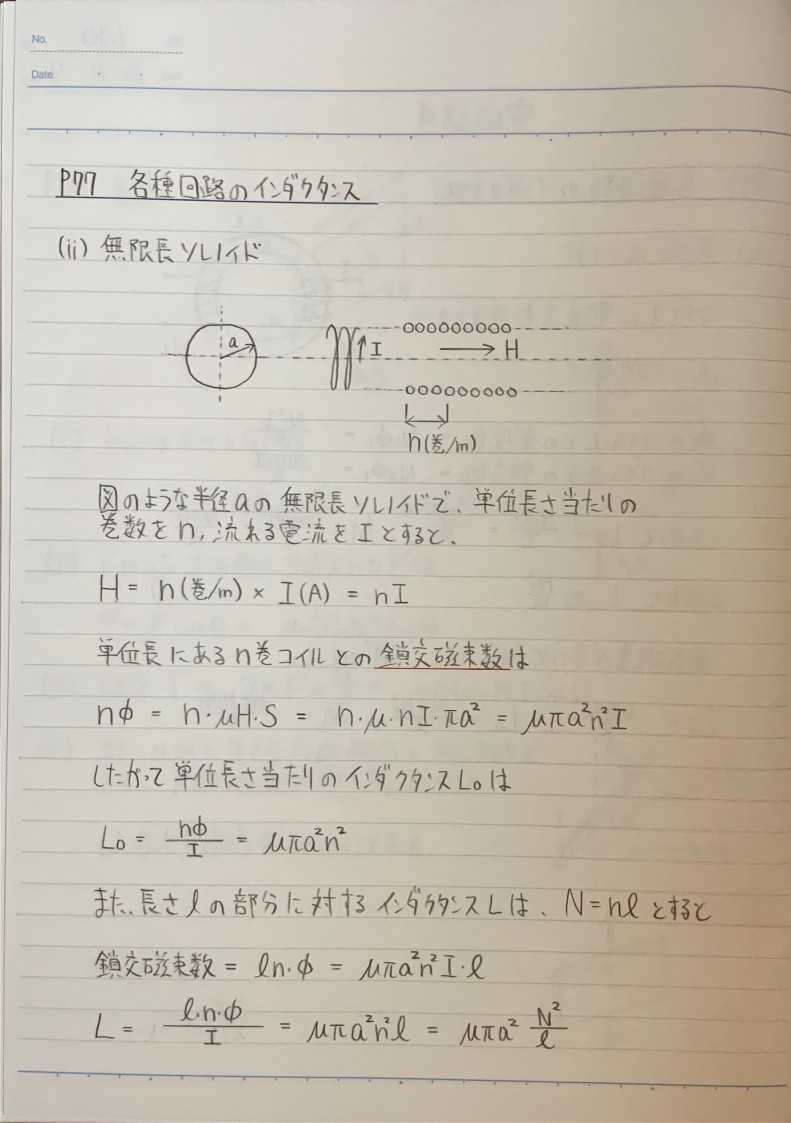 No.
Date
P77 各種回路のインダクタンス
(ii) 無限長ソレノイド
a
I
H
n(巻/m)
図のような半径aの無限長ソレノイドで、単位長さ当たりの
巻数をn,流れる電流をIとすると、
H = n(巻/m) × I(A) = nI
単位長にあるn巻コイルとの鎖交磁束数は
nΦ = n・μH・S = n・μ・nI・πa² = μπa²n²I
したがって単位長さ当たりのインダクタンスL₀は
L₀ = nΦ/I = μπa²n²
また、長さℓの部分に対するインダクタンスLは、N=nℓとすると
鎖交磁束数 = ℓn・Φ = μπa²n²I・ℓ
L = ℓ・n・Φ/I = μπa²n²ℓ = μπa² N²/ℓ